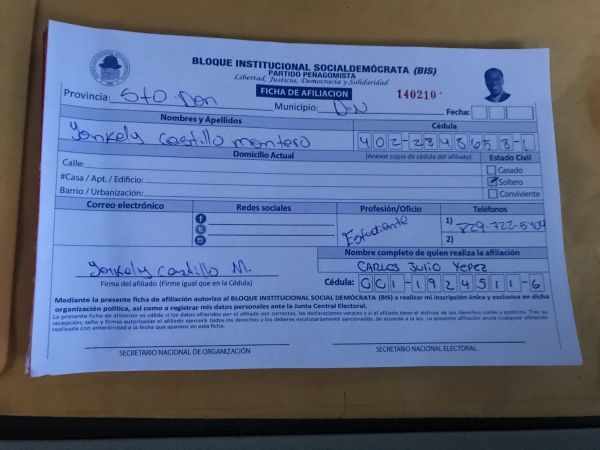 BLOQUE INSTITUCIONAL SOCIALDEMÓCRATA (BIS)
PARTIDO PEÑAGOMISTA
Libertad, Justicia, Democracia y Solidaridad
FICHA DE AFILIACION
140210
Provincia: Sto Dom Municipio: DN Fecha:
Nombres y Apellidos Cédula
Yonkely Castillo montero 402-2848653-1
Domicilio Actual (Anexar copia de cédula del afiliado) Estado Civil
Calle: Casado
#Casa / Apt. / Edificio: Soltero
Barrio / Urbanización: Conviviente
Correo electrónico Redes sociales Profesión/Oficio Teléfonos
Estudiante 1) 829-722-5404
2)
Nombre completo de quien realiza la afiliación
Yonkely Castillo M. CARLOS JULIO YEPEZ
Firma del afiliado (Firme igual que en la Cédula) Cédula: 001-1924511-6
Mediante la presente ficha de afiliación autorizo al BLOQUE INSTITUCIONAL SOCIAL DEMÓCRATA (BIS) a realizar mi inscripción única y exclusiva en dicha
organización política, así como a registrar mis datos personales ante la Junta Central Electoral.
La presente ficha de afiliación es válida si los datos ofrecidos por el afiliado son correctos, las declaraciones veraces y si el afiliado tiene el disfrute de sus derechos civiles y políticos. Tras su
recepción, sello y firmas autorizadas el afiliado ejercerá todos los derechos y los deberes estatutariamente sancionados, de acuerdo a la ley. La presente afiliación anula cualquier afiliación
realizada con anterioridad a la fecha que aparece en esta ficha.
SECRETARIO NACIONAL DE ORGANIZACIÓN SECRETARIO NACIONAL ELECTORAL